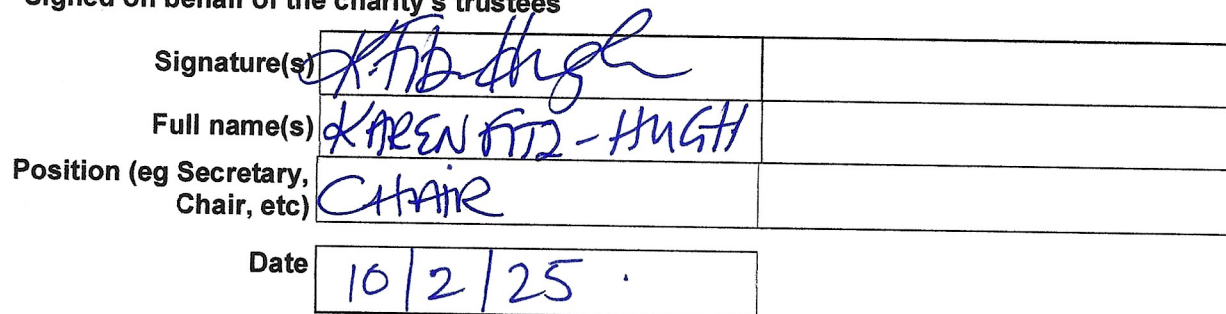 Signed on behalf of the charity's trustees
Signature(s) K. Fitz-Hugh
Full name(s) KAREN FITZ-HUGH
Position (eg Secretary,
Chair, etc) CHAIR
Date 10/2/25